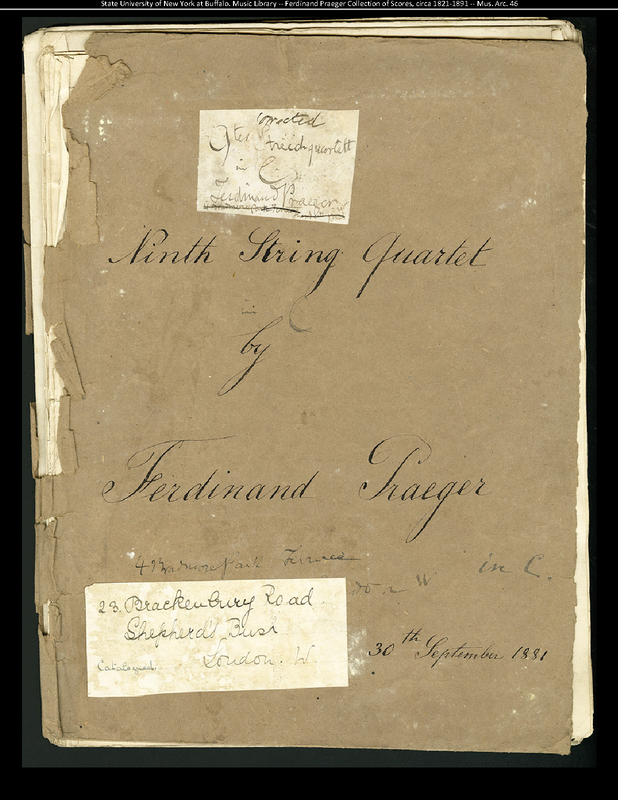 State University of New York at Buffalo. Music Library -- Ferdinand Praeger Collection of Scores, circa 1821-1891 -- Mus. Arc. 46
Corrected
9tes Streichquartett
in C.
Ferdinand Praeger
Ninth String Quartet
in C
by
Ferdinand Praeger
4 Park Terrace
London W in C.
23. Brackenbury Road.
Shepherd's Bush
Catalogued. London. W.
30th September 1881